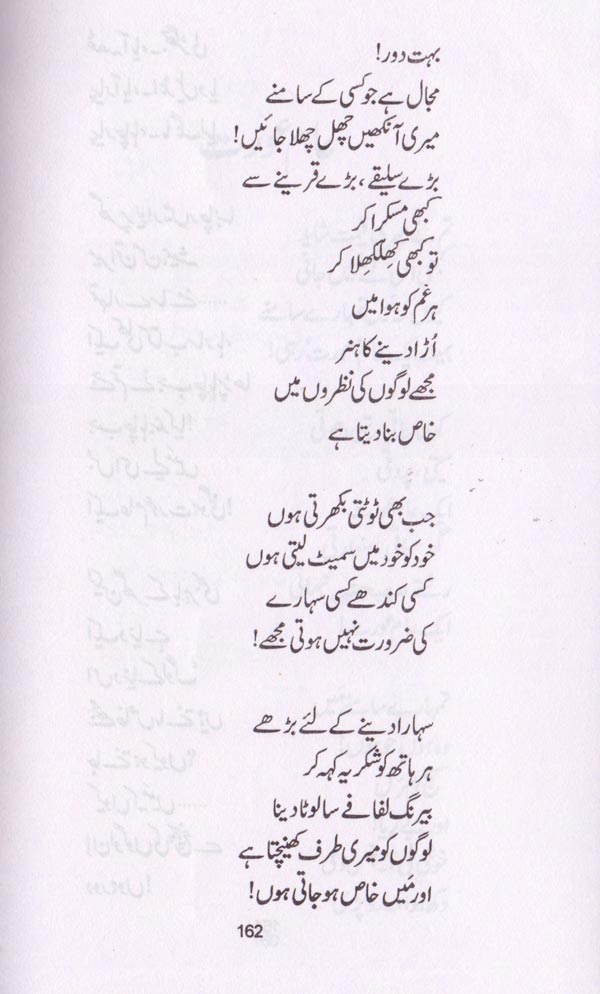 بہت دور!
مجال ہے جو کسی کے سامنے
میری آنکھیں چھل چھلا جائیں!
بڑے سلیقے، بڑے قرینے سے
کبھی مسکرا کر
تو کبھی کِھلکھِلا کر
ہر غم کو ہوا میں
اُڑا دینے کا ہنر
مجھے لوگوں کی نظروں میں
خاص بنا دیتا ہے
جب بھی ٹوٹتی بکھرتی ہوں
خود کو خود میں سمیٹ لیتی ہوں
کسی کندھے کسی سہارے
کی ضرورت نہیں ہوتی مجھے!
سہارا دینے کے لئے بڑھے
ہر ہاتھ کو شکریہ کہہ کر
بیرنگ لفافے سا لوٹا دینا
لوگوں کو میری طرف کھینچتا ہے
اور مَیں خاص ہو جاتی ہوں!
162